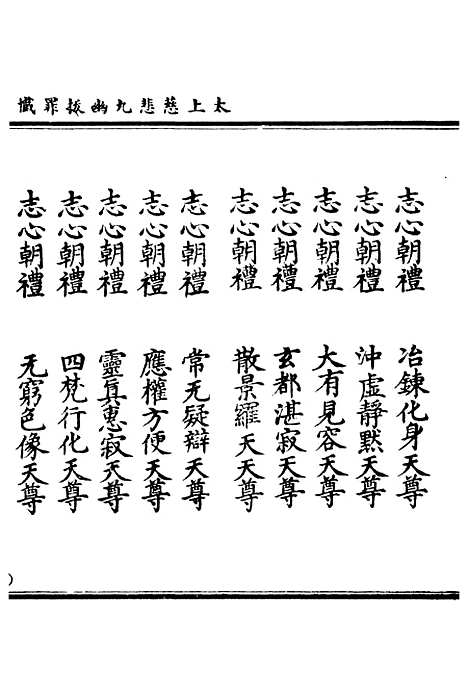 太上慈悲九幽拔罪懺
志心朝禮 冶鍊化身天尊
志心朝禮 沖虛靜默天尊
志心朝禮 大有見容天尊
志心朝禮 玄都湛寂天尊
志心朝禮 散景羅天天尊
志心朝禮 常无疑辯天尊
志心朝禮 應權方便天尊
志心朝禮 靈真惠寂天尊
志心朝禮 四梵行化天尊
志心朝禮 无窮色像天尊